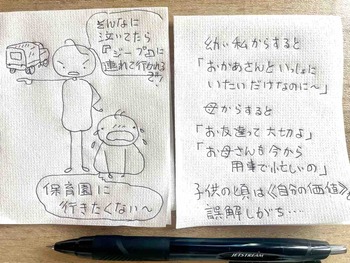 そんなに
泣いてたら
『ジープ』に
連れて行かれる
保育園に
行きたくない〜
幼い私からすると
「おかあさんといっしょに
いたいだけなのに〜」
母からすると
「お友達って大切よ」
「お母さんも今から
用事で忙しいの」
子供の頃は《自分の価値》を
誤解しがち・・・・
JETSTREAM